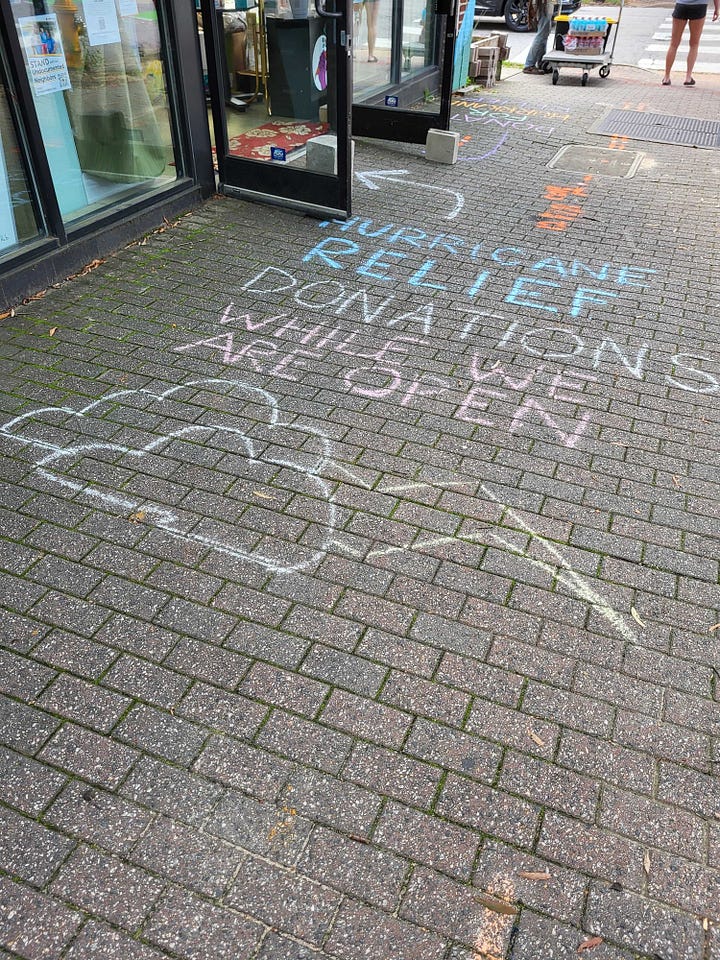 STAND with
Undocumented
Neighbors
HURRICANE
RELIEF
DONATIONS
WHILE WE
ARE OPEN